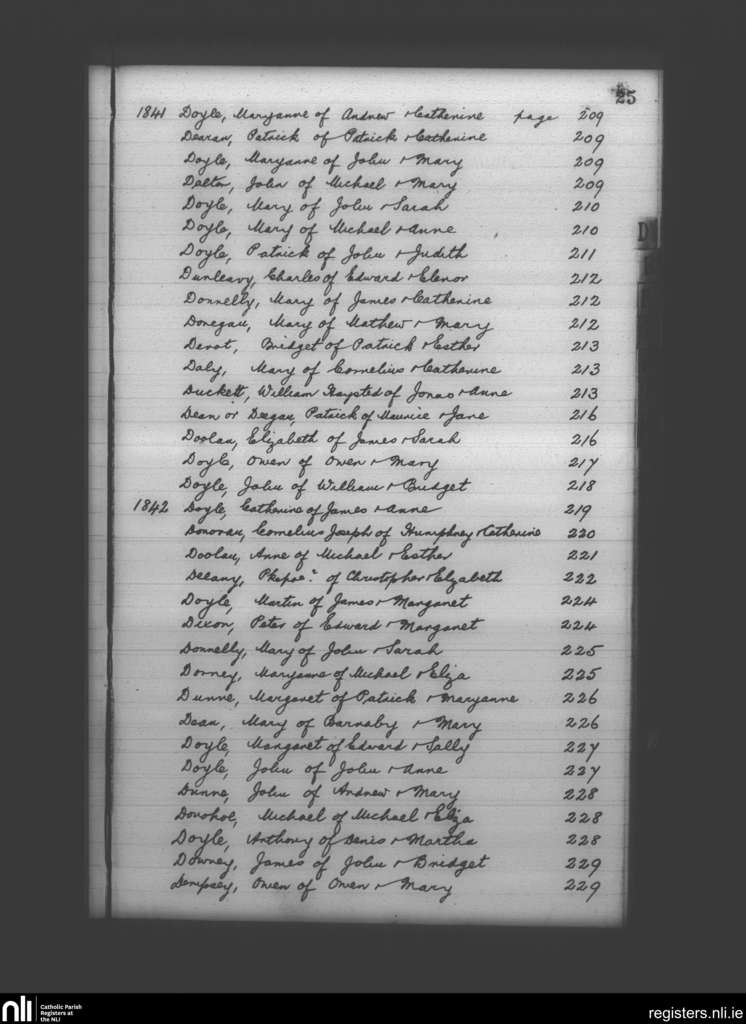 25
1841 Doyle, Maryanne of Andrew & Catherine page 209
Dearan, Patrick of Patrick & Catherine 209
Doyle, Maryanne of John & Mary 209
Dalton, John of Michael & Mary 209
Doyle, Mary of John & Sarah 210
Doyle, Mary of Michael & Anne 210
Doyle, Patrick of John & Judith 211
Dunleavy, Charles of Edward & Elenor 212
Donnelly, Mary of James & Catherine 212
Donegan, Mary of Mathew & Mary 212
Bridget of Patrick & Esther 213
Daly, Mary of Cornelius & Catherine 213
Duckett, William of Jonas & Anne 213
Dean or Deegan, Patrick of Maurice & Jane 216
Doolan, Elizabeth of James & Sarah 216
Doyle, Owen of Owen & Mary 217
Doyle, John of William & Bridget 218
1842 Doyle, Catherine of James & Anne 219
Donovan, Cornelius Joseph of Humphrey & Catherine 220
Doolan, Anne of Michael & Esther 221
Delany, of Christopher & Elizabeth 222
Doyle, Martin of James & Margaret 224
Dixon, Peter of Edward & Margaret 224
Donnelly, Mary of John & Sarah 225
Dorney, Maryanne of Michael & Eliza 225
Dunne, Margaret of Patrick & Maryanne 226
Dean, Mary of Barnaby & Mary 226
Doyle, Margaret of Edward & Sally 227
Doyle, John of John & Anne 227
Dunne, John of Andrew & Mary 228
Donohoe, Michael of Michael & Eliza 228
Doyle, Anthony of Denis & Martha 228
Downey, James of John & Bridget 229
Dempsey, Owen of Owen & Mary 229
D
nli
Catholic Parish
Registers at
the NLI
registers.nli.ie